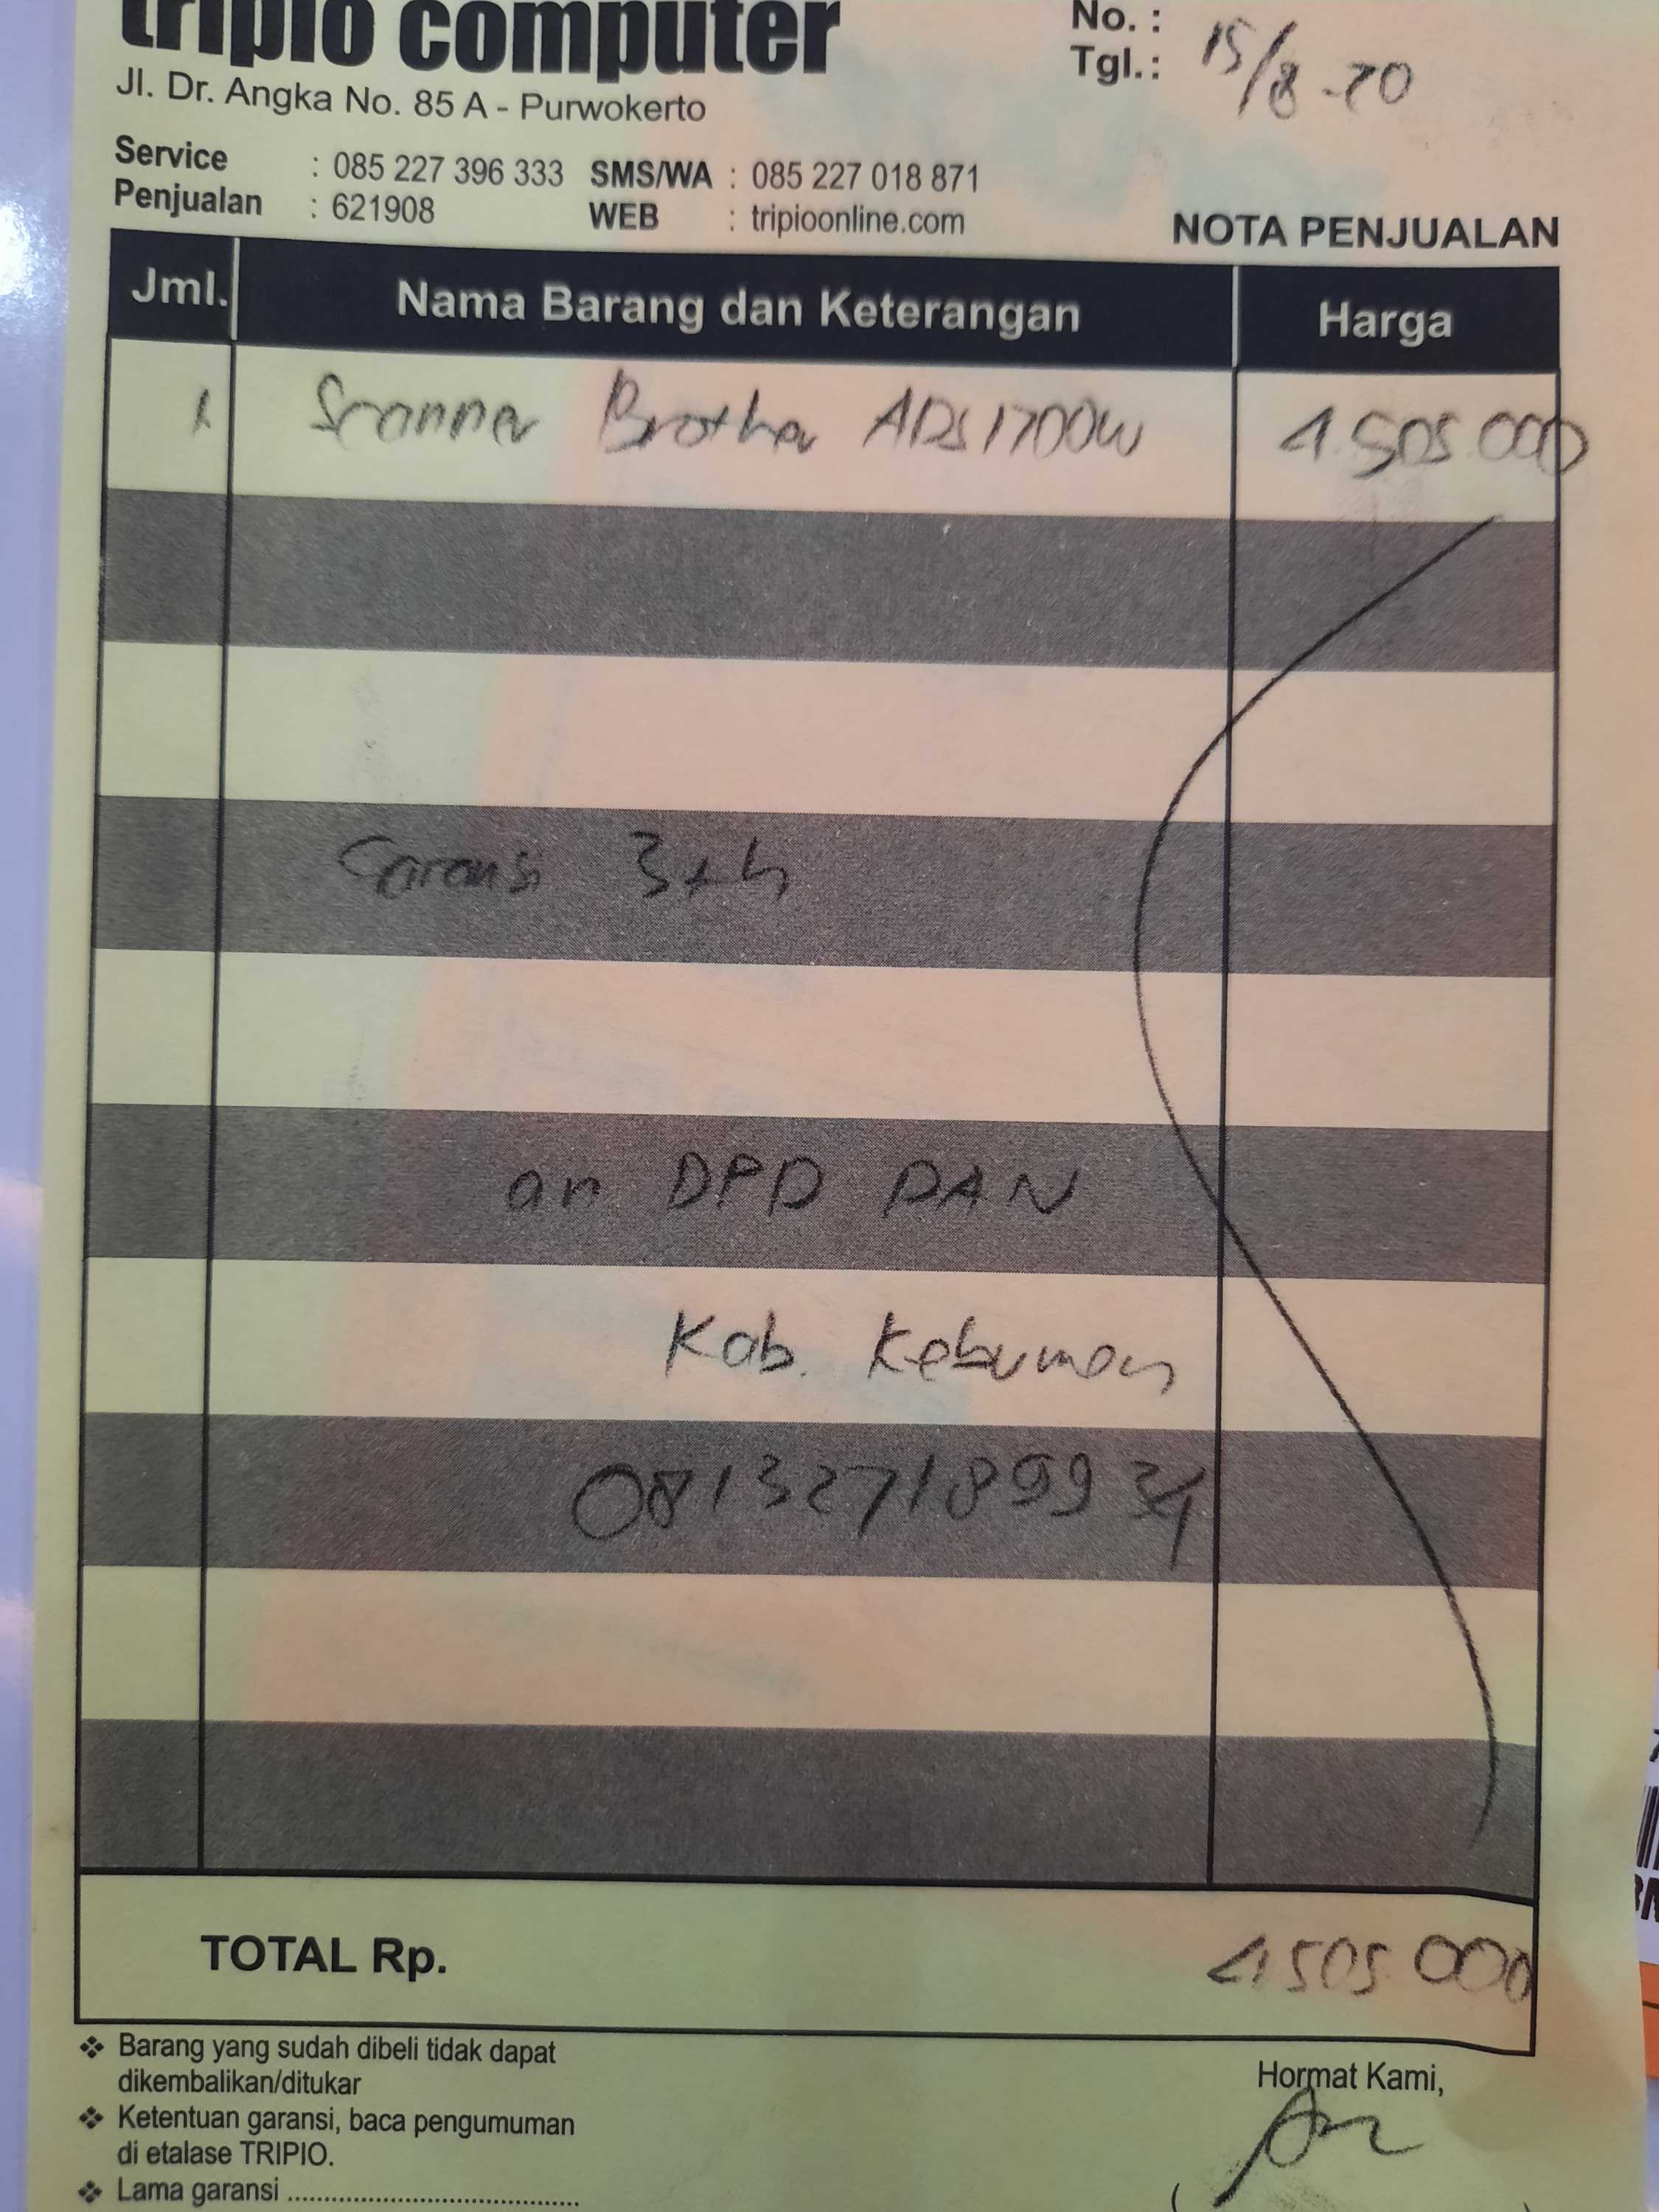 tripio computer
No. :
Tgl. : 15/8-20
Jl. Dr. Angka No. 85 A - Purwokerto
Service : 085 227 396 333 SMS/WA : 085 227 018 871
Penjualan : 621908 WEB : tripioonline.com
NOTA PENJUALAN
Jml. Nama Barang dan Keterangan Harga
1 Scanner Brother ADS1700W 4.505.000
Garansi 3th
an DPD PAN
Kab. Kebumen
081327189934
TOTAL Rp. 4505.000
❖ Barang yang sudah dibeli tidak dapat
dikembalikan/ditukar
❖ Ketentuan garansi, baca pengumuman
di etalase TRIPIO.
❖ Lama garansi ..........................................
Hormat Kami,
(